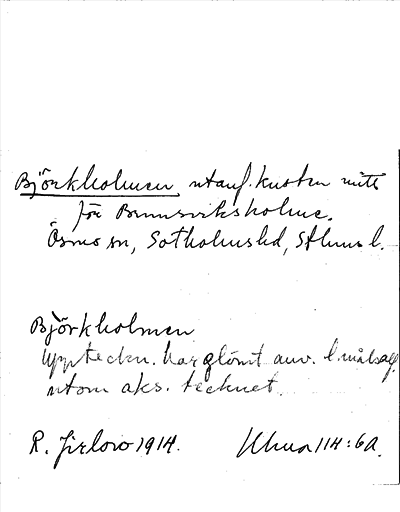 Björkholmen utanf. kusten mitt
för Brunnsviksholme.
Ösmo sn, Sotholms hd, Sthlms l.
Björkholmen
Uppteckn. har glömt anv. l.målsalf.
utom aks. tecknet.
R. Jirlow 1914. Uhua 114:6a.